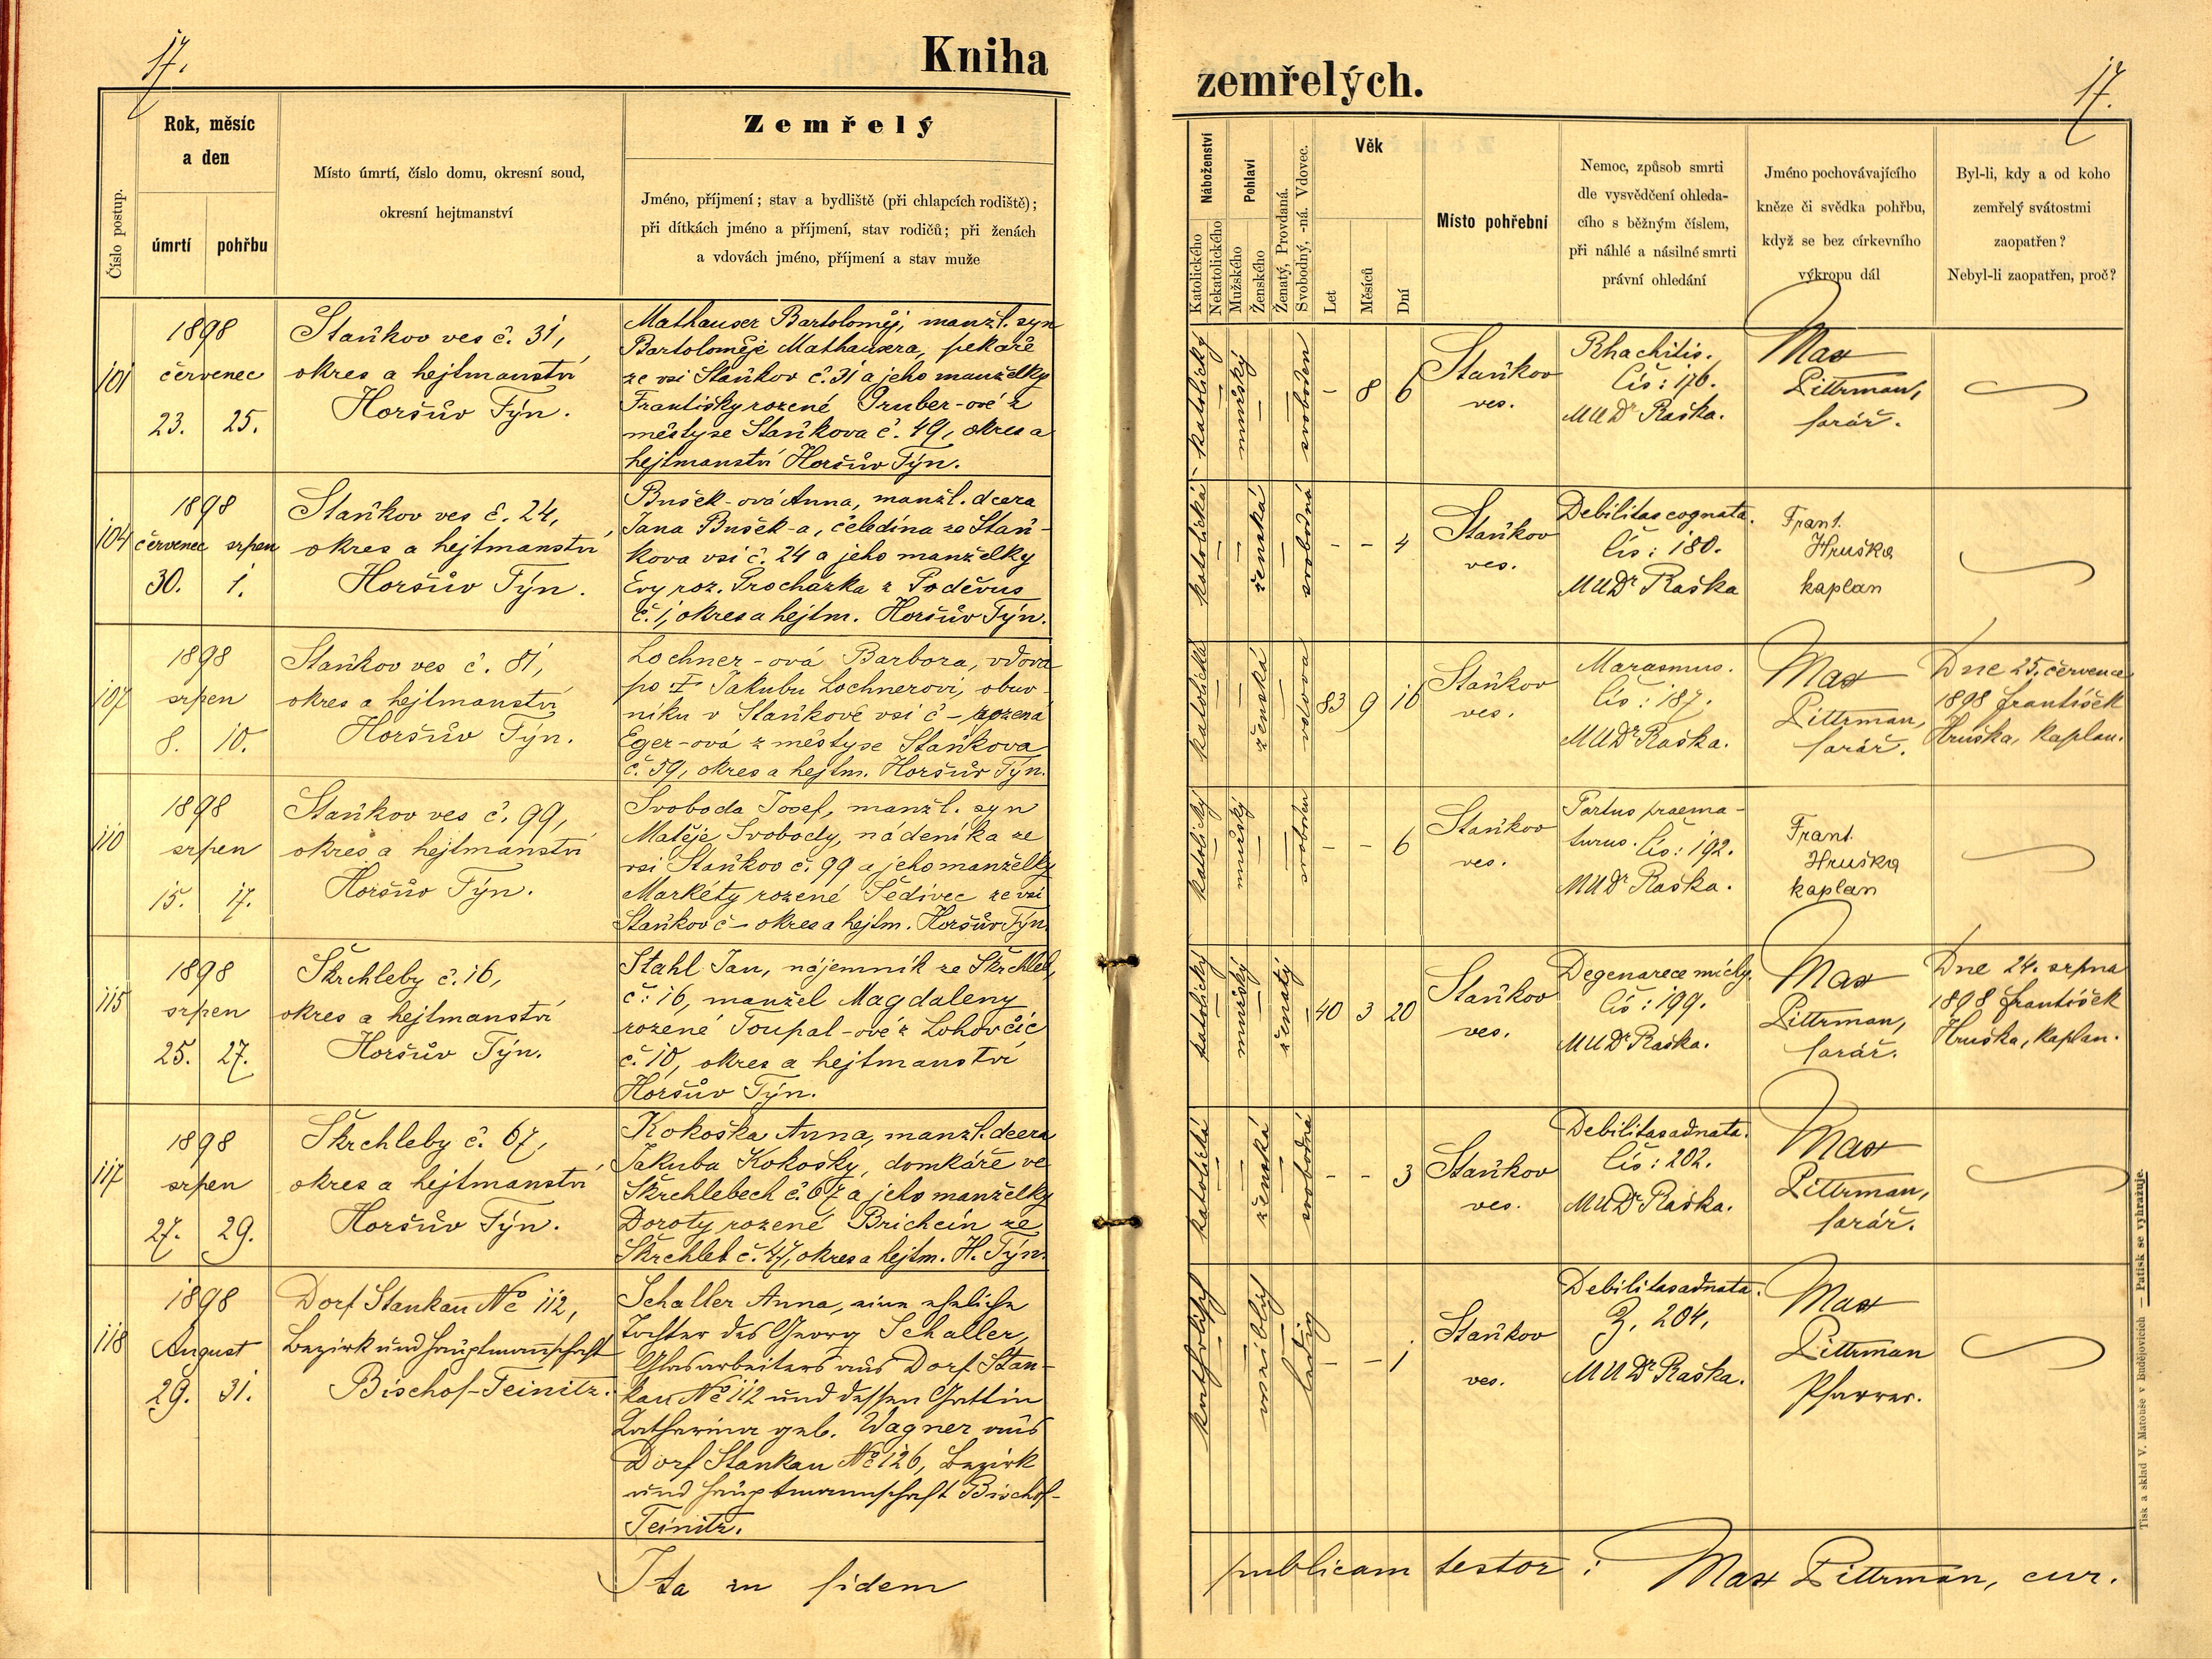 17.
Kniha
Rok, měsíc
a den
Číslo postup.
úmrtí
pohřbu
Místo úmrtí, číslo domu, okresní soud,
okresní hejtmanství
Zemřelý
Jméno, příjmení; stav a bydliště (při chlapcích rodiště);
při dítkách jméno a příjmení, stav rodičů; při ženách
a vdovách jméno, příjmení a stav muže
101
1898
červenec
23. 25.
Staňkov ves č. 31,
okres a hejtmanství
Horšův Týn.
Mathauser Bartoloměj, manžl. syn
Bartoloměje Mathausera, pekaře
ze vsi Staňkov č. 31 a jeho manželky
Františky rozené Gruber-ové z
městyse Staňkova č. 49, okres a
hejtmanství Horšův Týn.
104
1898
červenec srpen
30. 1.
Staňkov ves č. 24,
okres a hejtmanství
Horšův Týn.
Bušek-ová Anna, manžl. dcera
Jana Bušek-a, čeledína ze Staň-
kova vsi č. 24 a jeho manželky
Evy roz. Procházka z Poděvus
č. 1, okres a hejtm. Horšův Týn.
107
1898
srpen
8. 10.
Staňkov ves č. 81,
okres a hejtmanství
Horšův Týn.
Lochner-ová Barbora, vdova
po † Jakubu Lochnerovi, obuv-
níku v Staňkově vsi č – rozená
Eger-ová z městyse Staňkova
č. 59, okres a hejtm. Horšův Týn.
110
1898
srpen
15. 17.
Staňkov ves č. 99,
okres a hejtmanství
Horšův Týn.
Svoboda Josef, manžl. syn
Matěje Svobody, nádeníka ze
vsi Staňkov č. 99 a jeho manželky
Markéty rozené Šedivec ze vsi
Staňkov č – okres a hejtm. Horšův Týn.
115
1898
srpen
25. 27.
Škrchleby č. 16,
okres a hejtmanství
Horšův Týn.
Stahl Jan, nájemník ze Škrchleb,
č: 16, manžel Magdaleny
rozené Toupal-ové z Lohovčic
č. 10, okres a hejtmanství
Horšův Týn.
117
1898
srpen
27. 29.
Škrchleby č. 67,
okres a hejtmanství
Horšův Týn.
Kokoška Anna, manžl. dcera
Jakuba Kokošky, domkáře ve
Škrchlebech č. 67 a jeho manželky
Doroty rozené Brichcín ze
Škrchleb č. 47, okres a hejtm. H. Týn.
118
1898
August
29. 31.
Dorf Stankau No 112,
Bezirk und Hauptmannschaft
Bischof-Teinitz.
Schaller Anna, eine eheliche
Tochter des Georg Schaller,
Glasarbeiters aus Dorf Stan-
kau No 112 und dessen Gattin
Katharina geb. Wagner aus
Dorf Stankau No 126, Bezirk
und Hauptmannschaft Bischof-
Teinitz.
Ita in fidem
zemřelých.
17.
Náboženství
Katolického
Nekatolického
Pohlaví
Mužského
Ženského
Ženatý, Provdaná.
Svobodný, -ná. Vdovec.
Věk
Let
Měsíců
Dní
Místo pohřební
Nemoc, způsob smrti
dle vysvědčení ohleda-
cího s běžným číslem,
při náhlé a násilné smrti
právní ohledání
Jméno pochovávajícího
kněze či svědka pohřbu,
když se bez církevního
výkropu dál
Byl-li, kdy a od koho
zemřelý svátostmi
zaopatřen?
Nebyl-li zaopatřen, proč?
katolický
mužský
svoboden
– 8 6
Staňkov
ves.
Rhachitis.
Čís: 176.
MUDr Raška.
Max
Pittrman,
farář.
katolická
ženská
svobodná
– – 4
Staňkov
ves.
Debilitas cognata.
Čís: 180.
MUDr Raška
Frant.
Hruška
kaplan
katolická
ženská
vdova
83 9 16
Staňkov
ves.
Marasmus.
Čís: 187.
MUDr Raška.
Max
Pittrman,
farář.
Dne 25. července
1898 František
Hruška, kaplan.
katolický
mužský
svoboden
– – 6
Staňkov
ves.
Partus praema-
turus. Čís: 192.
MUDr Raška.
Frant.
Hruška
kaplan
katolický
mužský
ženatý
40 3 20
Staňkov
ves.
Degenerece míchy.
Čís: 199.
MUDr Raška.
Max
Pittrman,
farář.
Dne 24. srpna
1898 František
Hruška, kaplan.
katolická
ženská
svobodná
– – 3
Staňkov
ves.
Debilitas adnata.
Čís: 202.
MUDr Raška.
Max
Pittrman,
farář.
katholisch
weiblich
ledig
– – 1
Staňkov
ves.
Debilitas adnata.
Z. 204,
MUDr Raška.
Max
Pittrman
Pfarrer.
publicam testor: Max Pittrman, cur.
Tisk a sklad V. Matouše v Budějovicích — Patisk se vyhražuje.